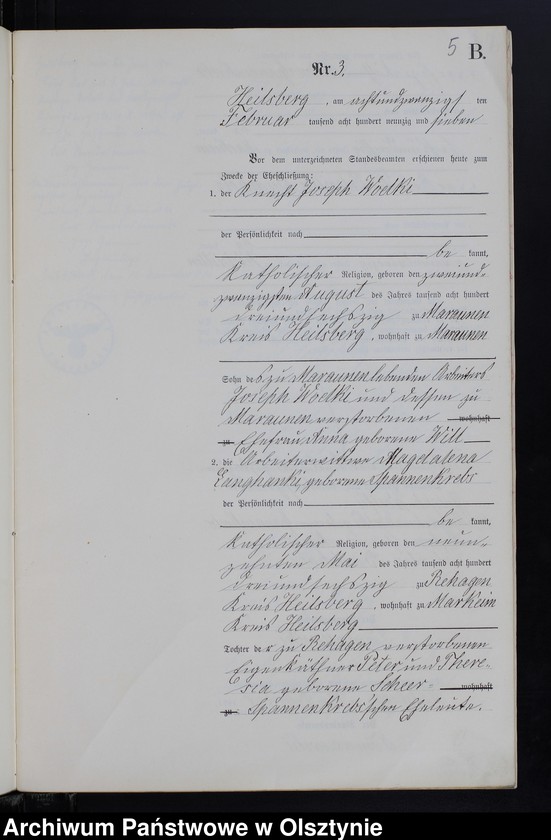 5 B.
Nr. 3.
Heilsberg, am achtundzwanzigsten
Februar tausend acht hundert neunzig und sieben
Vor dem unterzeichneten Standesbeamten erschienen heute zum
Zwecke der Eheschließung:
1. der Knecht Joseph Woelki
der Persönlichkeit nach
be kannt,
katholischer Religion, geboren den zweiund-
zwanzigsten August des Jahres tausend acht hundert
dreiundsechszig zu Maraunen
Kreis Heilsberg, wohnhaft zu Maraunen
Sohn des zu Maraunen lebenden Arbeiters
Joseph Woelki und dessen zu
Maraunen verstorbenen wohnhaft
zu Ehefrau Anna geborene Will
2. die Arbeiterwittwe Magdalena
Langhanki, geborene Spannenkrebs
der Persönlichkeit nach
be kannt,
katholischer Religion, geboren den neun-
zehnten Mai des Jahres tausend acht hundert
dreiundsechszig zu Rehagen
Kreis Heilsberg, wohnhaft zu Markeim
Kreis Heilsberg
Tochter der zu Rehagen verstorbenen
Eigenkäthner Peter und There-
sia geborene Scheer- wohnhaft
zu Spannenkrebs'schen Eheleute.
Archiwum Państwowe w Olsztynie